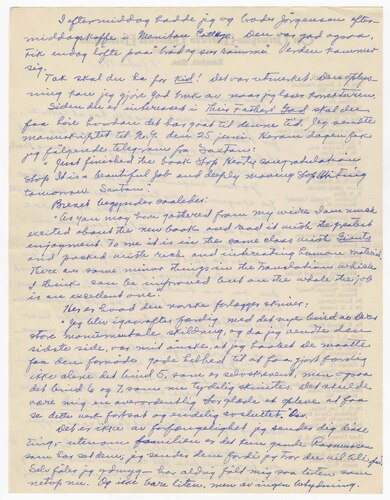 I eftermiddag hadde jeg og broder Jørgensen efter-
middagskaffe i Manitou Cottage. Den var god ogsaa,
Fik endog løfte paa "bröd og ses kamme". Verden kommer
sig.
Tak skal du ha for Kid! Det var utmerket. Den oplysning
kan jeg gjøre god bruk av naar jeg læser korrekturen.
Siden du er interessert i Their Fathers' God skal du
faa høre hvordan det har gaat til denne tid. Jeg sendte
manuskriptet til N.Y. den 25 juni. Noen dager fik
jeg følgende telegram fra Saxton:
"Just finished the book Stop Hearty congratulations
Stop It is a beautiful job and deeply moving Stop Writing
tomorrow. Saxton"
Brevet begynder saaledes:
"As you may have gathered from my wire I am much
excited about the new book and read it with the greatest
enjoyment. To me it is in the same class with Giants
and packed with rich and interesting human material.
There are some minor things in the translation which
I think can be improved but on the whole the job
is an excellent one."
Her er hvad den norske forlægger skriver:
"Jeg blev igaar aftes færdig med det nye bind av Deres
store monumentale skildring, og da jeg vendte den
sidste side, var mit ønske at jeg haabet De maatte
faa den fornødne gode helbred til at faa gjort færdig
ikke alene det bind 5, som er selvskreven, men ogsaa
det bind 6 og 7, som nu tydelig skimtes. Det skulde
være mig en overordentlig stor glæde at opleve at faa
se dette verk fortsat og endelig avsluttet."
Det er ikke av forfængelighet jeg sender dig disse
ting; utenom familien er det kun gamle Rasmussen
som har set dem; jeg sender dem fordi jeg tror du vil bli glad.
Selv føler jeg ydmyg — har aldrig følt mig saa liten som
netop nu. Og ikke bare liten, men av ingen betydning.